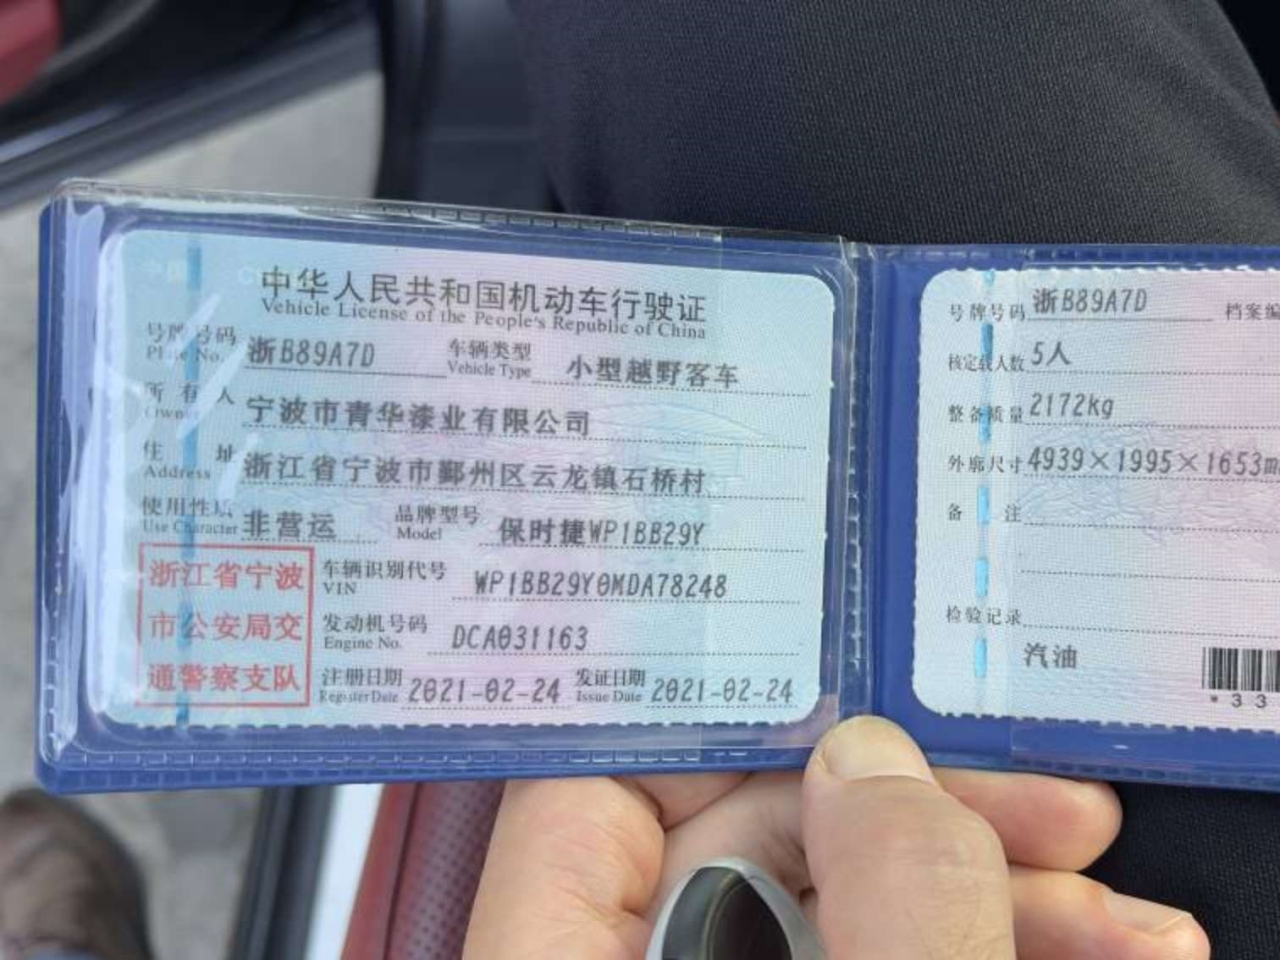 中华人民共和国机动车行驶证
Vehicle License of the People's Republic of China
号牌号码 浙B89A7D 车辆类型 小型越野客车
Plate No. Vehicle Type
所有人 宁波市青华漆业有限公司
Owner
住址 浙江省宁波市鄞州区云龙镇石桥村
Address
使用性质 非营运 品牌型号 保时捷WP1BB29Y
Use Character Model
浙江省宁波
市公安局交
通警察支队
车辆识别代号 WP1BB29Y0MDA78248
VIN
发动机号码 DCA031163
Engine No.
注册日期 2021-02-24 发证日期 2021-02-24
Register Date Issue Date
号牌号码 浙B89A7D 档案编
核定载人数 5人
整备质量 2172kg
外廓尺寸 4939×1995×1653m
备注
检验记录
汽油
*33